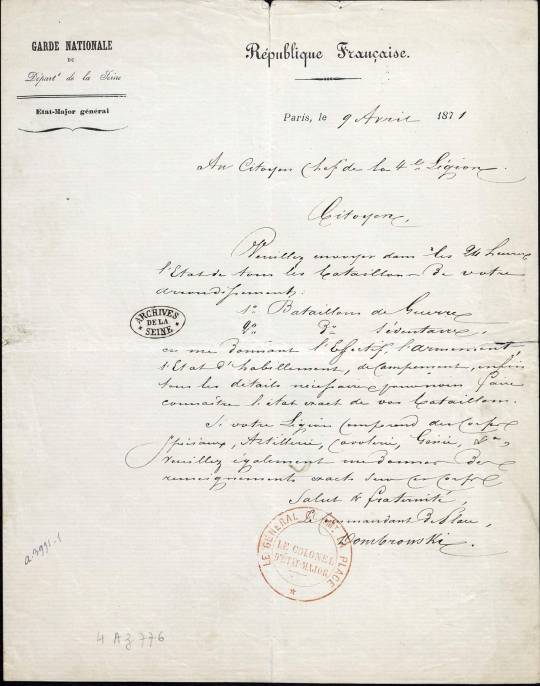 GARDE NATIONALE
DU
Départt de la Seine
Etat-Major général
République Française.
Paris, le 9 Avril 1871
Au Citoyen Chef de la 4e Légion.
Citoyen,
Veuillez envoyer dans les 24 heures
l'Etat de tous les bataillons de votre
arrondissement:
1o Bataillons de Guerre
2o do Sédentaires,
en me donnant l'Effectif, l'armement,
l'Etat d'habillement, de campement, enfin
tous les détails nécessaires pour nous faire
connaître l'état exact de vos bataillons.
Si votre Légion comprend des corps
spéciaux, Artillerie, Cavalerie, Génie, &a,
veuillez également me donner des
renseignements exacts sur ces corps
Salut & fraternité,
Le Commandant de Place,
Dombrowski
ARCHIVES
DE LA
SEINE
LE GÉNÉRAL PLACE
LE COLONEL
D'ETAT-MAJOR
a 3991-1
4 AZ 776